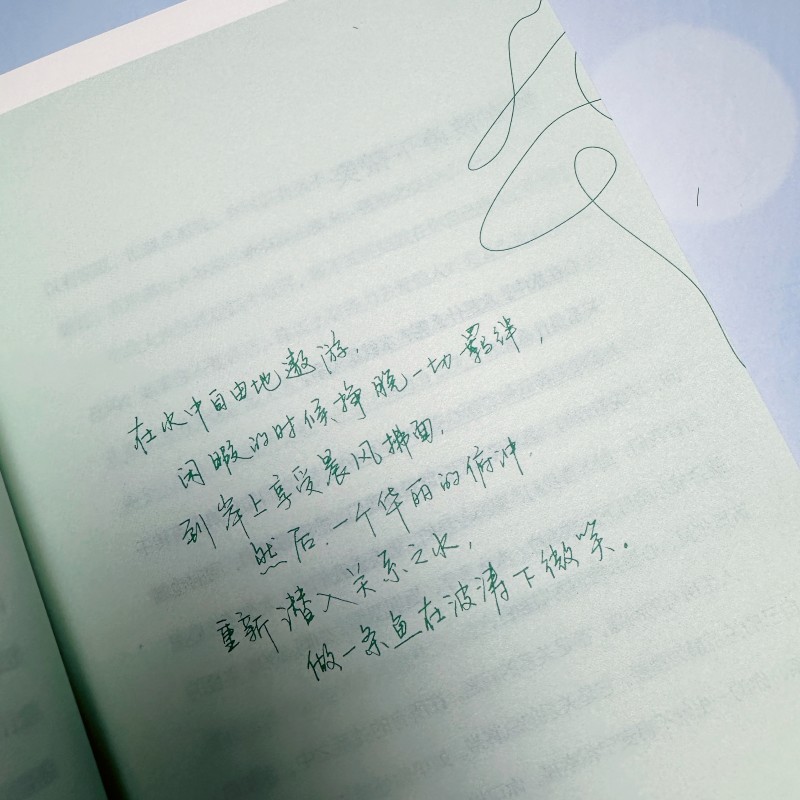 在水中自由地遨游，
闲暇的时候挣脱一切羁绊，
到岸上享受晨风拂面，
然后，一个华丽的俯冲，
重新潜入关系之水，
做一条鱼在波涛下微笑。